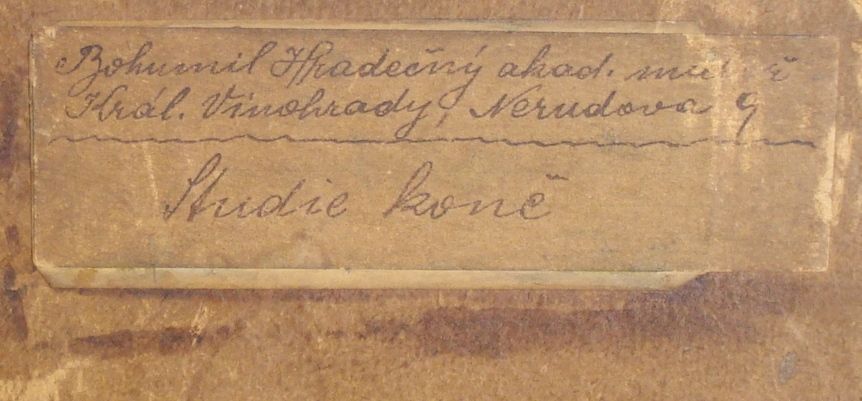 Bohumil Hradečný akad.
Král. Vinohrady, Nerudova 9
Studie koně